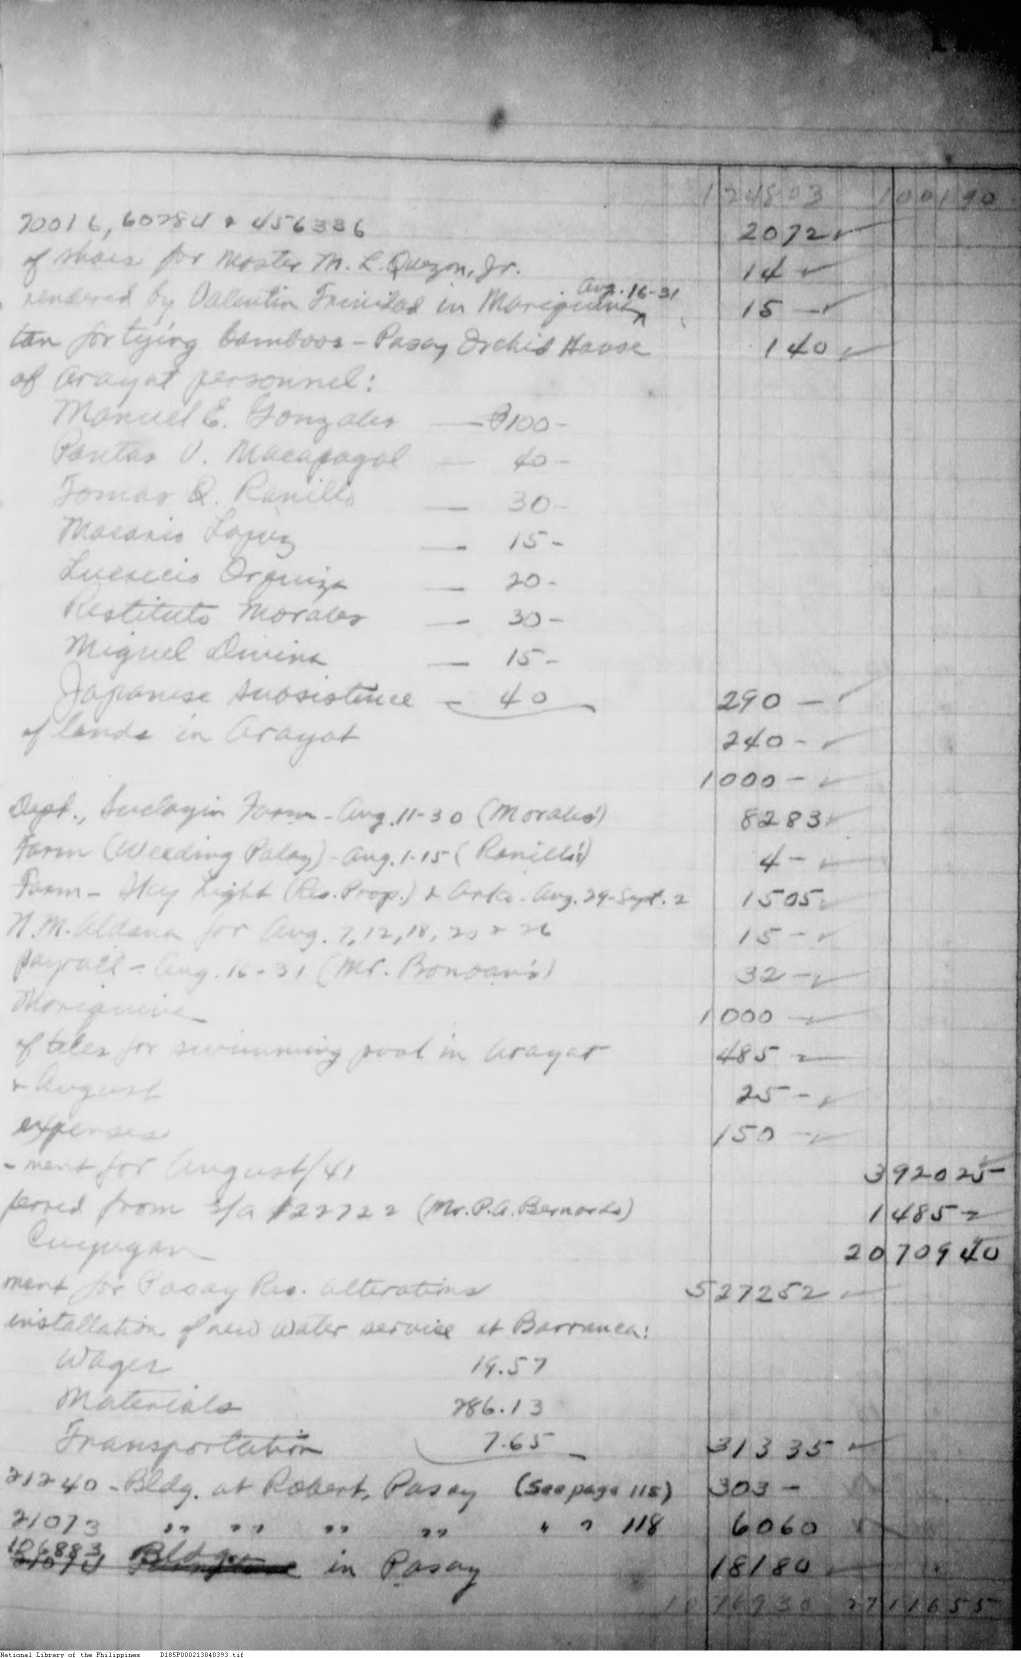 124803 100190
70016, 60784 & 456336 2072
of shoes for Master M. L. Quezon, Jr. 14 -
Aug. 16-31
rendered by Valentin Trinidad in Mariquina 15 -
tan for tying bamboos - Pasay Orchid House 140
of Arayat personnel:
Manuel E. Gonzales — ₱100 -
Pantas V. Macapagal — 40 -
Tomas Q. Ranillo — 30 -
Macario Lopez — 15 -
Orguiza — 20 -
Restituto Morales — 30 -
Miguel Divina — 15 -
Japanese subsistence - 40 290 -
of lands in Arayat 240 -
1000 -
Dept., Farm - Aug. 11-30 (Morales') 8283
Farm (Weeding Palay) - Aug. 1-15 (Ranillo's) 4 -
Farm - Sky Light (Res. Prop.) & Arks. Aug. 29-Sept. 2 1505
N. M. Aldana for Aug. 7, 12, 18, 20 & 26 15 -
payroll - Aug. 16-31 (Mr. Bonoan's) 32 -
Mariquina 1000 -
of tiles for swimming pool in Arayat 485 -
& August 25 -
expenses 150 -
-ment for August/41 392025
ferred from S/a #22722 (Mr. P.A. Bernardo) 1485 -
Cuyugan 2070940
ment for Pasay Res. alterations 527252
installation of new water service at Barranca:
Wages 19.57
Materials 286.13
Transportation 7.65 31335
21240 - Bldg. at Robert, Pasay (See page 118) 303 -
21073 " " " " " " 118 6060
106883 Bldgs. in Pasay 18180
1076930 2711655
National Library of the Philippines D185P000213040393.tif